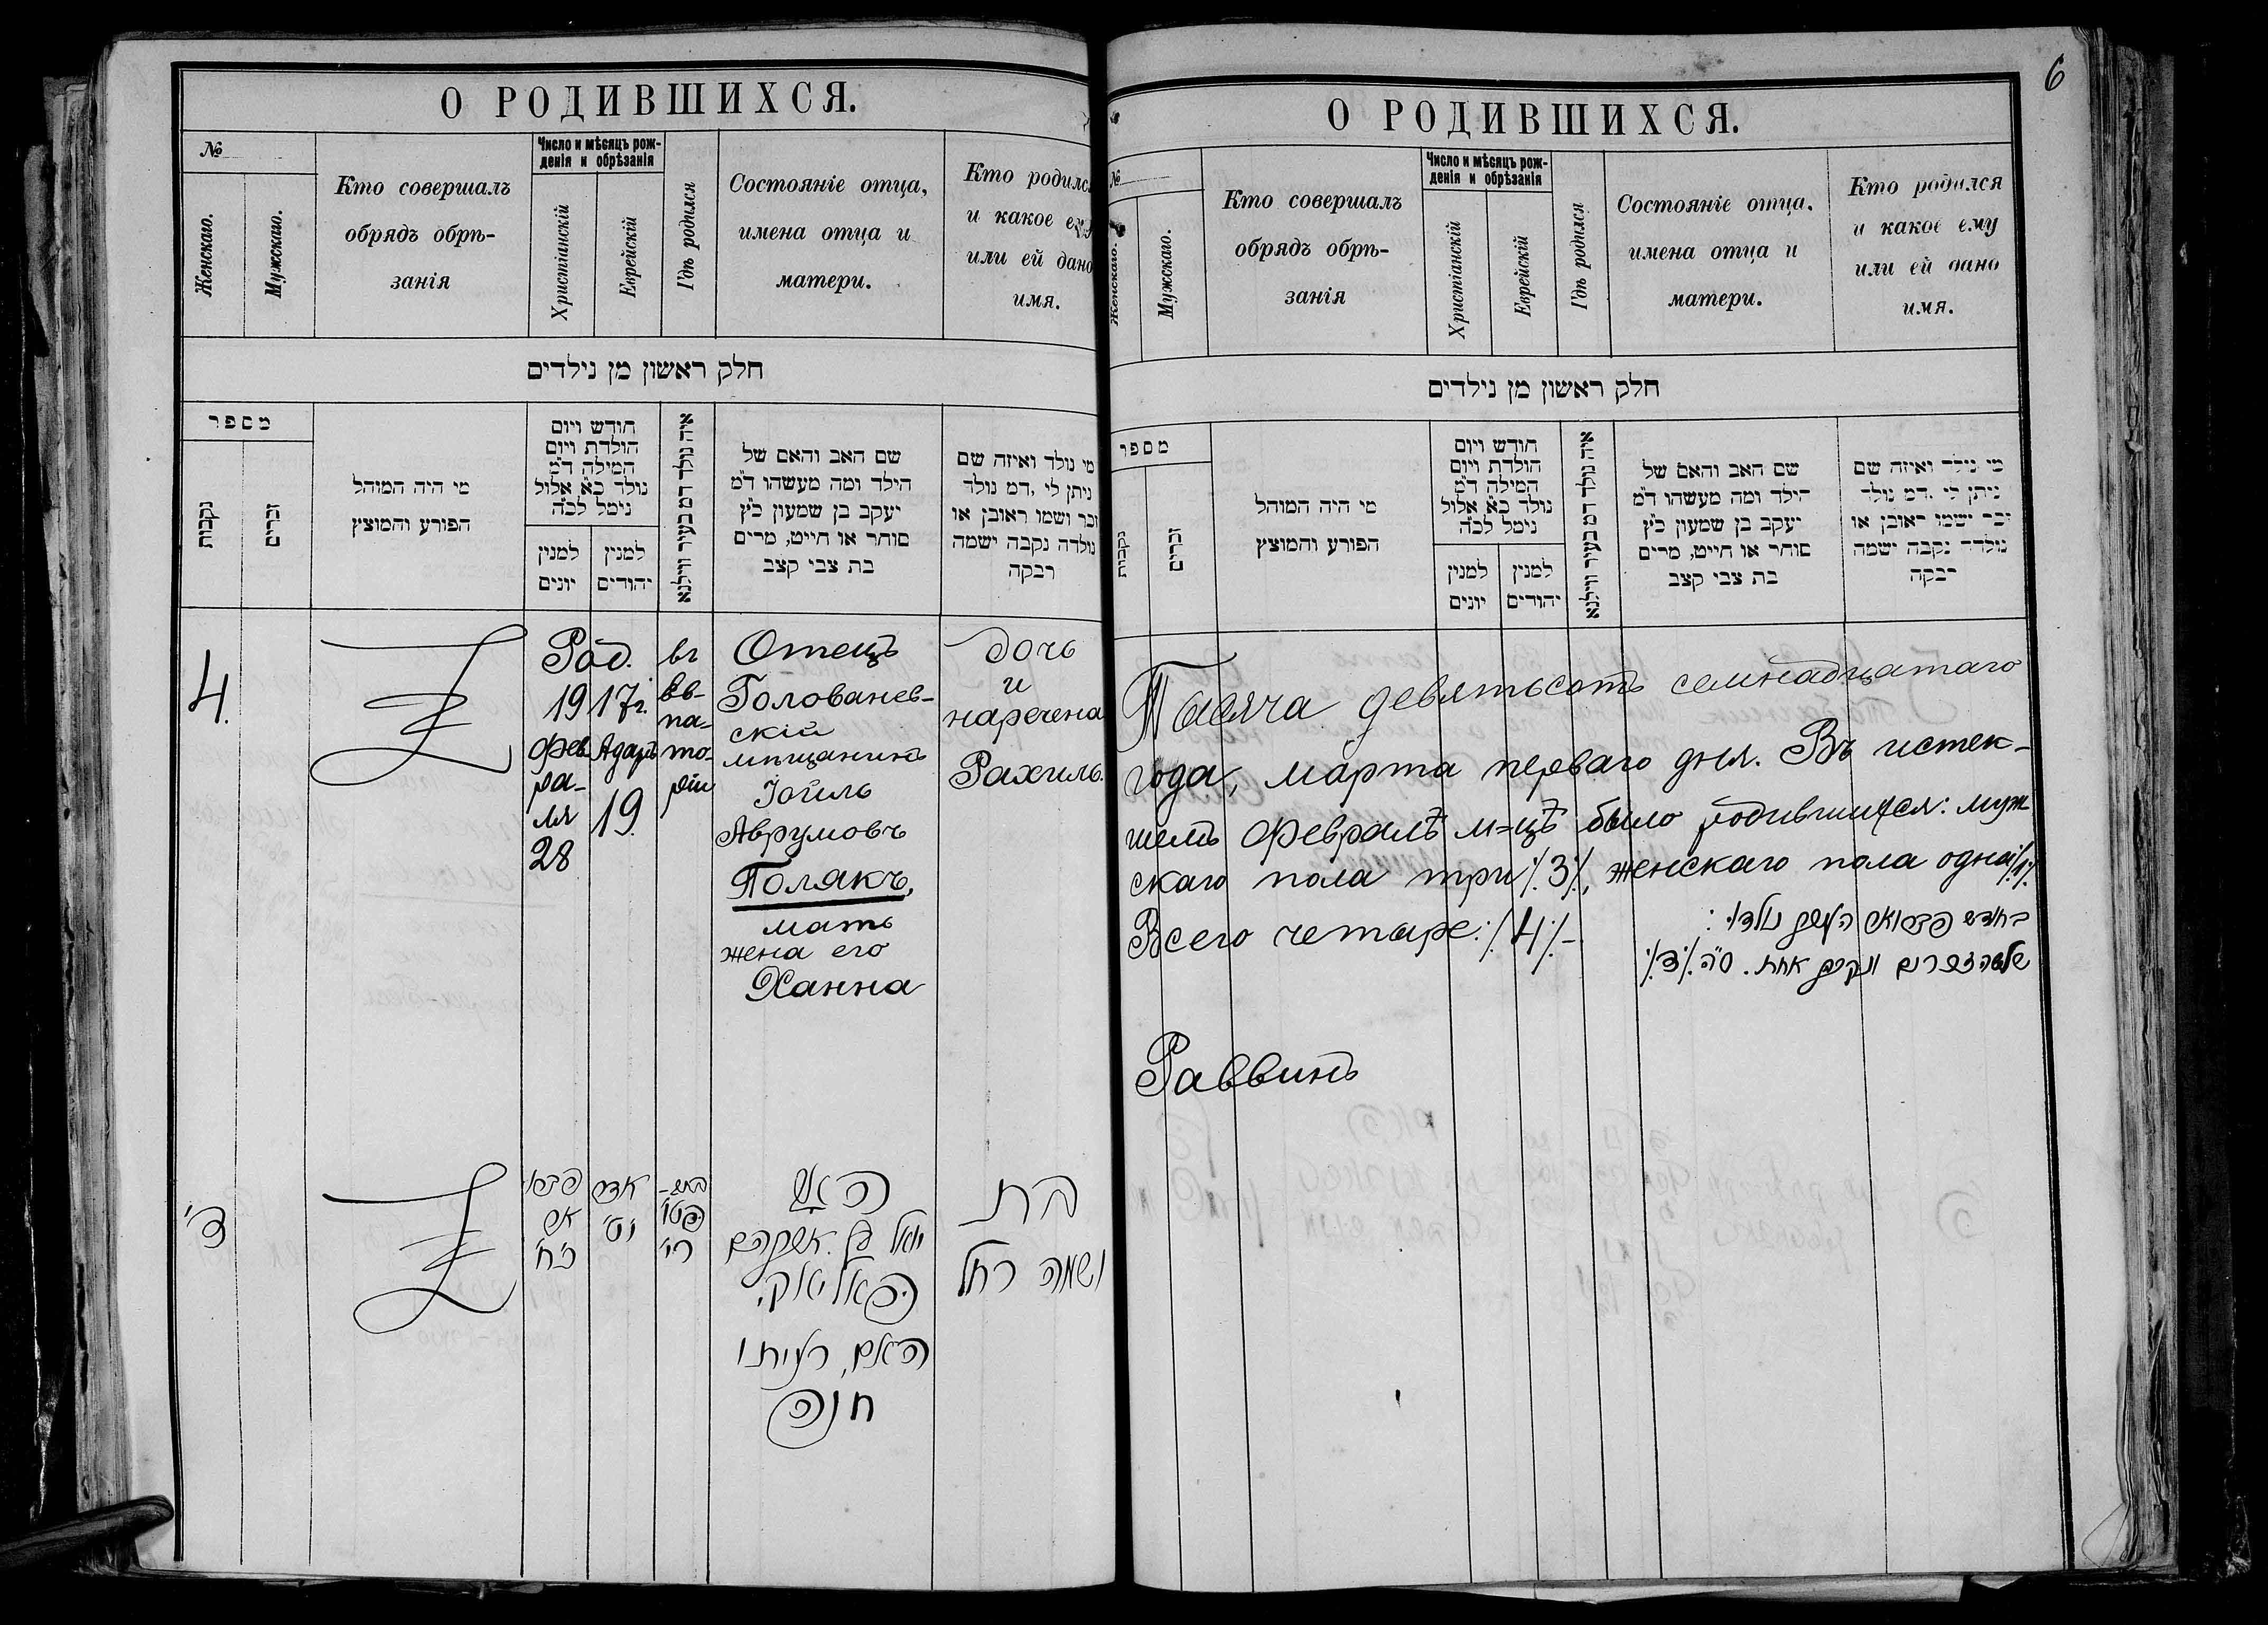 О РОДИВШИХСЯ.
№
Женскаго.
Мужскаго.
Кто совершалъ
обрядъ обрѣ-
занія
Число и мѣсяцъ рож-
денія и обрѣзанія
Христіанскій
Еврейскій
Гдѣ родился
Состояніе отца,
имена отца и
матери.
Кто родился
и какое ему
или ей дано
имя.
חלק ראשון מן נילדים
מספר
נקבות
זכרים
מי היה המוהל
הפורע והמוצץ
חודש ויום
הולדת ויום
המילה ד״מ
נולד כ״א אלול
נימל לכ״ה
למנין
יונים
למנין
יהודים
איה נולד דמ בעיר ווילנא
שם האב והאם של
הילד ומה מעשהו ד״מ
יעקב בן שמעון כ״ץ
סוחר או חייט, מרים
בת צבי קצב
מי נולד ואיזה שם
ניתן לי, דמ נולד
זכר ושמו ראובן או
נולדה נקבה ישמה
רבקה
4.
Род.
1917г.
Фев
ра-
ля
28
Адаръ
19.
въ
Ев-
па-
то-
ріи
Отецъ
Голованев-
скій
мѣщанинъ
Іоиль
Аврумовъ
Полякъ,
мать
жена его
Ханна
дочь
и
наречена
Рахиль.
ד׳
כ״ח
אדר
י״ט
האב
יואל בן אברהם
פאליאק,
האם, רעיתו
חנה
בת
ושמה רחל
6
О РОДИВШИХСЯ.
№
Женскаго.
Мужскаго.
Кто совершалъ
обрядъ обрѣ-
занія
Число и мѣсяцъ рож-
денія и обрѣзанія
Христіанскій
Еврейскій
Гдѣ родился
Состояніе отца,
имена отца и
матери.
Кто родился
и какое ему
или ей дано
имя.
חלק ראשון מן נילדים
מספר
נקבות
זכרים
מי היה המוהל
הפורע והמוצץ
חודש ויום
הולדת ויום
המילה ד״מ
נולד כ״א אלול
נימל לכ״ה
למנין
יונים
למנין
יהודים
איה נולד דמ בעיר ווילנא
שם האב והאם של
הילד ומה מעשהו ד״מ
יעקב בן שמעון כ״ץ
סוחר או חייט, מרים
בת צבי קצב
מי נולד ואיזה שם
ניתן לי, דמ נולד
זכר ושמו ראובן או
נולדה נקבה ישמה
רבקה
Тысяча девятьсотъ семнадцатаго
года, марта перваго дня. Въ истек-
шемъ Февралѣ м-цѣ было родившихся: муж
скаго пола три ٪3٪, женскаго пола одна ٪1٪
Всего четыре: ٪4٪-
בחודש נולדו:
שלשה זכרים ונקבה אחת. ס״ה ٪ד٪
Раввинъ